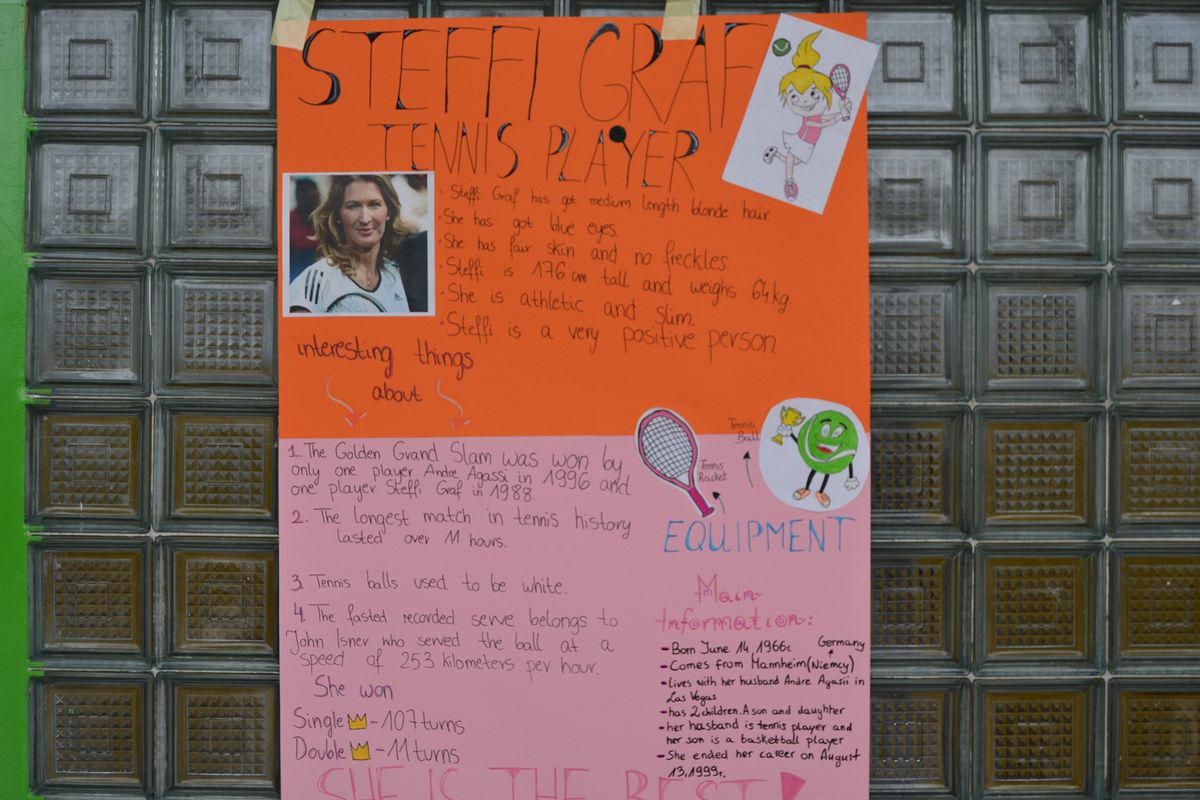 STEFFI GRAF
TENNIS PLAYER
· Steffi Graf has got medium length blonde hair
· She has got blue eyes.
· She has fair skin and no freckles.
· Steffi is 176 cm tall and weighs 64kg.
· She is athletic and slim.
· Steffi is a very positive person.
interesting things
about
1. The Golden Grand Slam was won by
only one player Andre Agassi in 1996 and
one player Steffi Graf in 1988.
2. The longest match in tennis history
lasted over 11 hours.
3. Tennis balls used to be white.
4. The fasted recorded serve belongs to
John Isner who served the ball at a
speed of 253 kilometers per hour.
She won
Single - 107turns
Double - 11turns
Tennis
Ball
Tennis
Racket
EQUIPMENT
Main
Information:
- Born June 14, 1966r.
Germany
- Comes from Mannheim (Niemcy)
- Lives with her husband Andre Agasii in
Las Vegas
- has 2 children. A son and daughter
- her husband is tennis player and
her son is a basketball player
- She ended her career on August
13, 1999r.
SHE IS THE BEST!